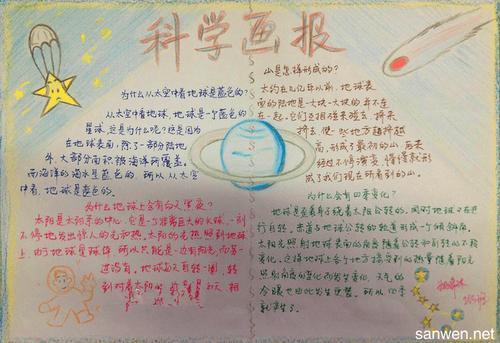 科学画报
为什么从太空中看地球是蓝色的?
从太空中看地球,地球是一个蓝色的
星球,这是为什么呢?这是因为
在地球表面,除了一部分陆地
外,大部分面积被海洋所覆盖。
而海洋的海水呈蓝色的,所以从太空
中看,地球是蓝色的。
为什么地球上会有白天黑夜?
太阳是太阳系的中心,它是一个非常巨大的火球,一刻
不停地发出惊人的光和热。太阳的光热照到地球
上,由于地球是球体,所以只能是一边有阳光,而另一
边没有。地球每天自转一周,转
到对着太阳的
山是怎样形成的?
大约在几亿年以前,地球表
面的陆地是一大块一大块的,并不连
在一起,它们互相碰来碰去,挤来
挤去,使一些地方越挤越
高,形成了最初的山,后来
经过不停演变,慢慢就形
成了我们现在所看到的山。
为什么会有四季变化?
地球是在自身绕着太阳公转的,同时地球又在进
行自转,赤道与地球公转的轨道形成一个倾斜角,
太阳光照射地球表面的角度随着公转和自转的不断
变化。这样地球上各个地方接受到的热量随着阳光
照射角度的变化而发生变化,天气的
冷暖也由此发生更替。所以四季
就产生了。
sanwen.net